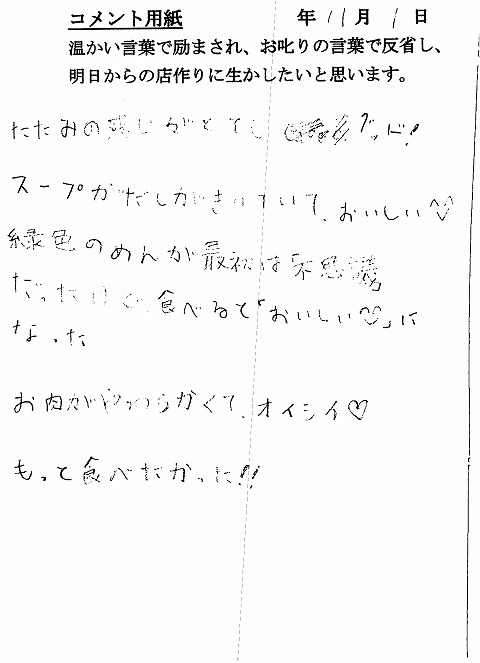 コメント用紙　年 11月 1日
温かい言葉で励まされ、お叱りの言葉で反省し、
明日からの店作りに生かしたいと思います。
たたみの感じがとても グッド!
スープがだしがきいていて、おいしい♡
緑色のめんが最初は「不思議」
だったけど、食べると「おいしい♡」に
なった
お肉がやわらかくて、オイシイ♡
もっと食べたかった!!